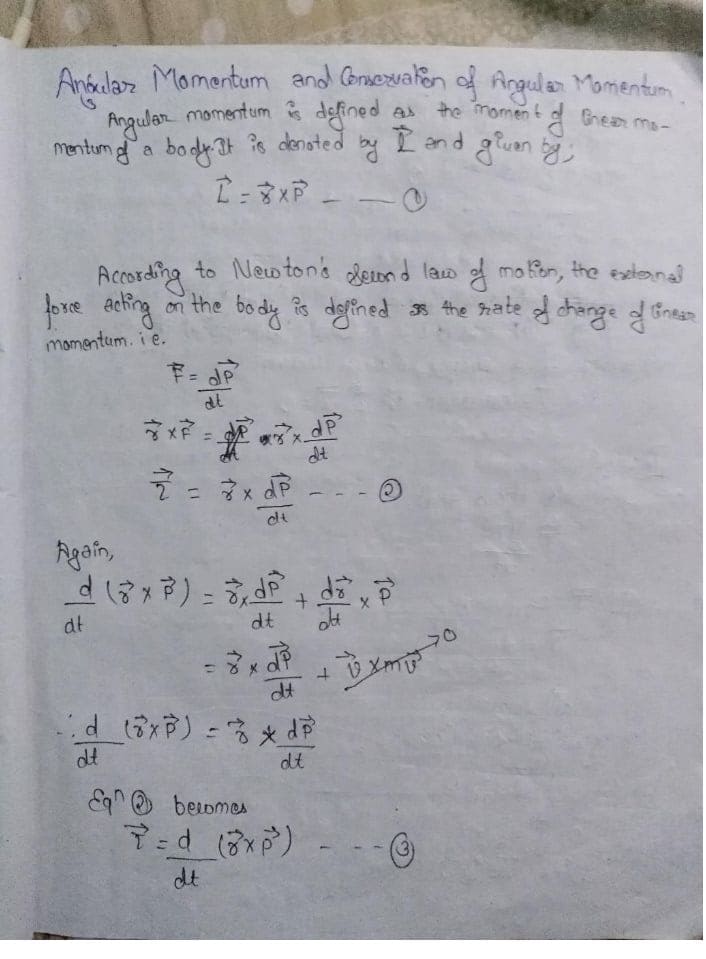 Angular Momentum and Conservation of Angular Momentum.
Angular momentum is defined as the moment of linear mo-
mentum of a body. It is denoted by L⃗ and given by;
L⃗ = r⃗ × P⃗ - - - ①
According to Newton's second law of motion, the external
force acting on the body is defined as the rate of change of linear
momentum. i.e.
F⃗ = dP⃗/dt
r⃗ × F⃗ = r⃗ × dP⃗/dt
τ⃗ = r⃗ × dP⃗/dt - - - ②
Again,
d/dt (r⃗ × P⃗) = r⃗ × dP⃗/dt + dr⃗/dt × P⃗
= r⃗ × dP⃗/dt + v⃗ × mv⃗ → 0
∴ d/dt (r⃗ × P⃗) = r⃗ × dP⃗/dt
Eqⁿ ② becomes
τ⃗ = d/dt (r⃗ × P⃗) - - - ③